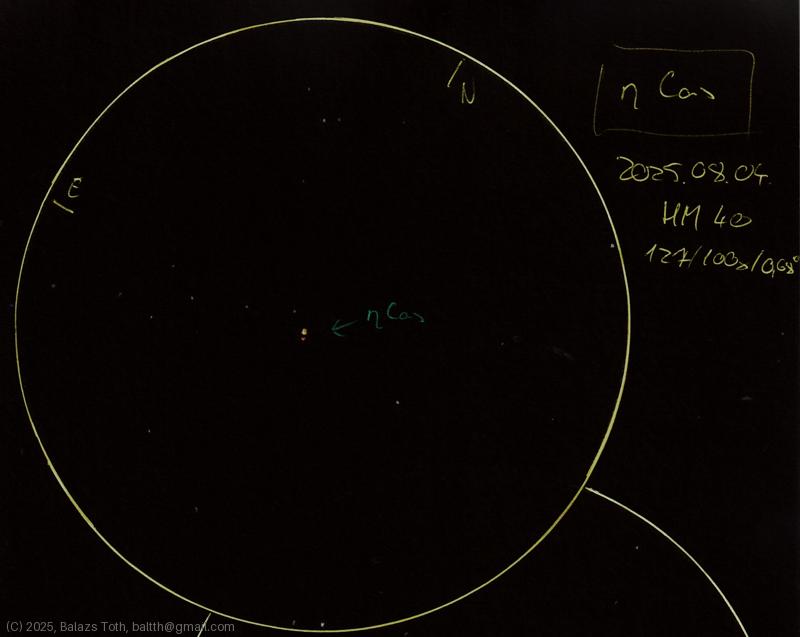 N
η Cas
E
2025.08.04.
HM 40
127/100x/0,68°
← η Cas
(C) 2025, Balazs Toth, baltth@gmail.com